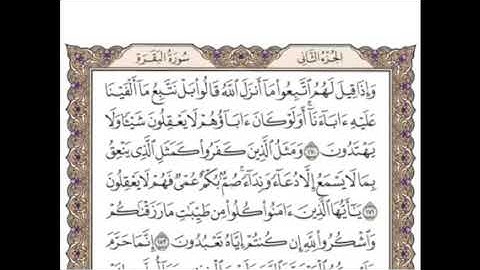 الجزء الثاني
سورة البقرة
وَإِذَا قِيلَ لَهُمُ ٱتَّبِعُوا۟ مَآ أَنزَلَ ٱللَّهُ قَالُوا۟ بَلْ نَتَّبِعُ مَآ أَلْفَيْنَا
عَلَيْهِ ءَابَآءَنَآ أَوَلَوْ كَانَ ءَابَآؤُهُمْ لَا يَعْقِلُونَ شَيْـًٔا وَلَا
يَهْتَدُونَ ١٧٠ وَمَثَلُ ٱلَّذِينَ كَفَرُوا۟ كَمَثَلِ ٱلَّذِى يَنْعِقُ
بِمَا لَا يَسْمَعُ إِلَّا دُعَآءً وَنِدَآءً صُمٌّۢ بُكْمٌ عُمْىٌ فَهُمْ لَا يَعْقِلُونَ
١٧١ يَـٰٓأَيُّهَا ٱلَّذِينَ ءَامَنُوا۟ كُلُوا۟ مِن طَيِّبَـٰتِ مَا رَزَقْنَـٰكُمْ
وَٱشْكُرُوا۟ لِلَّهِ إِن كُنتُمْ إِيَّاهُ تَعْبُدُونَ ١٧٢ إِنَّمَا حَرَّمَ